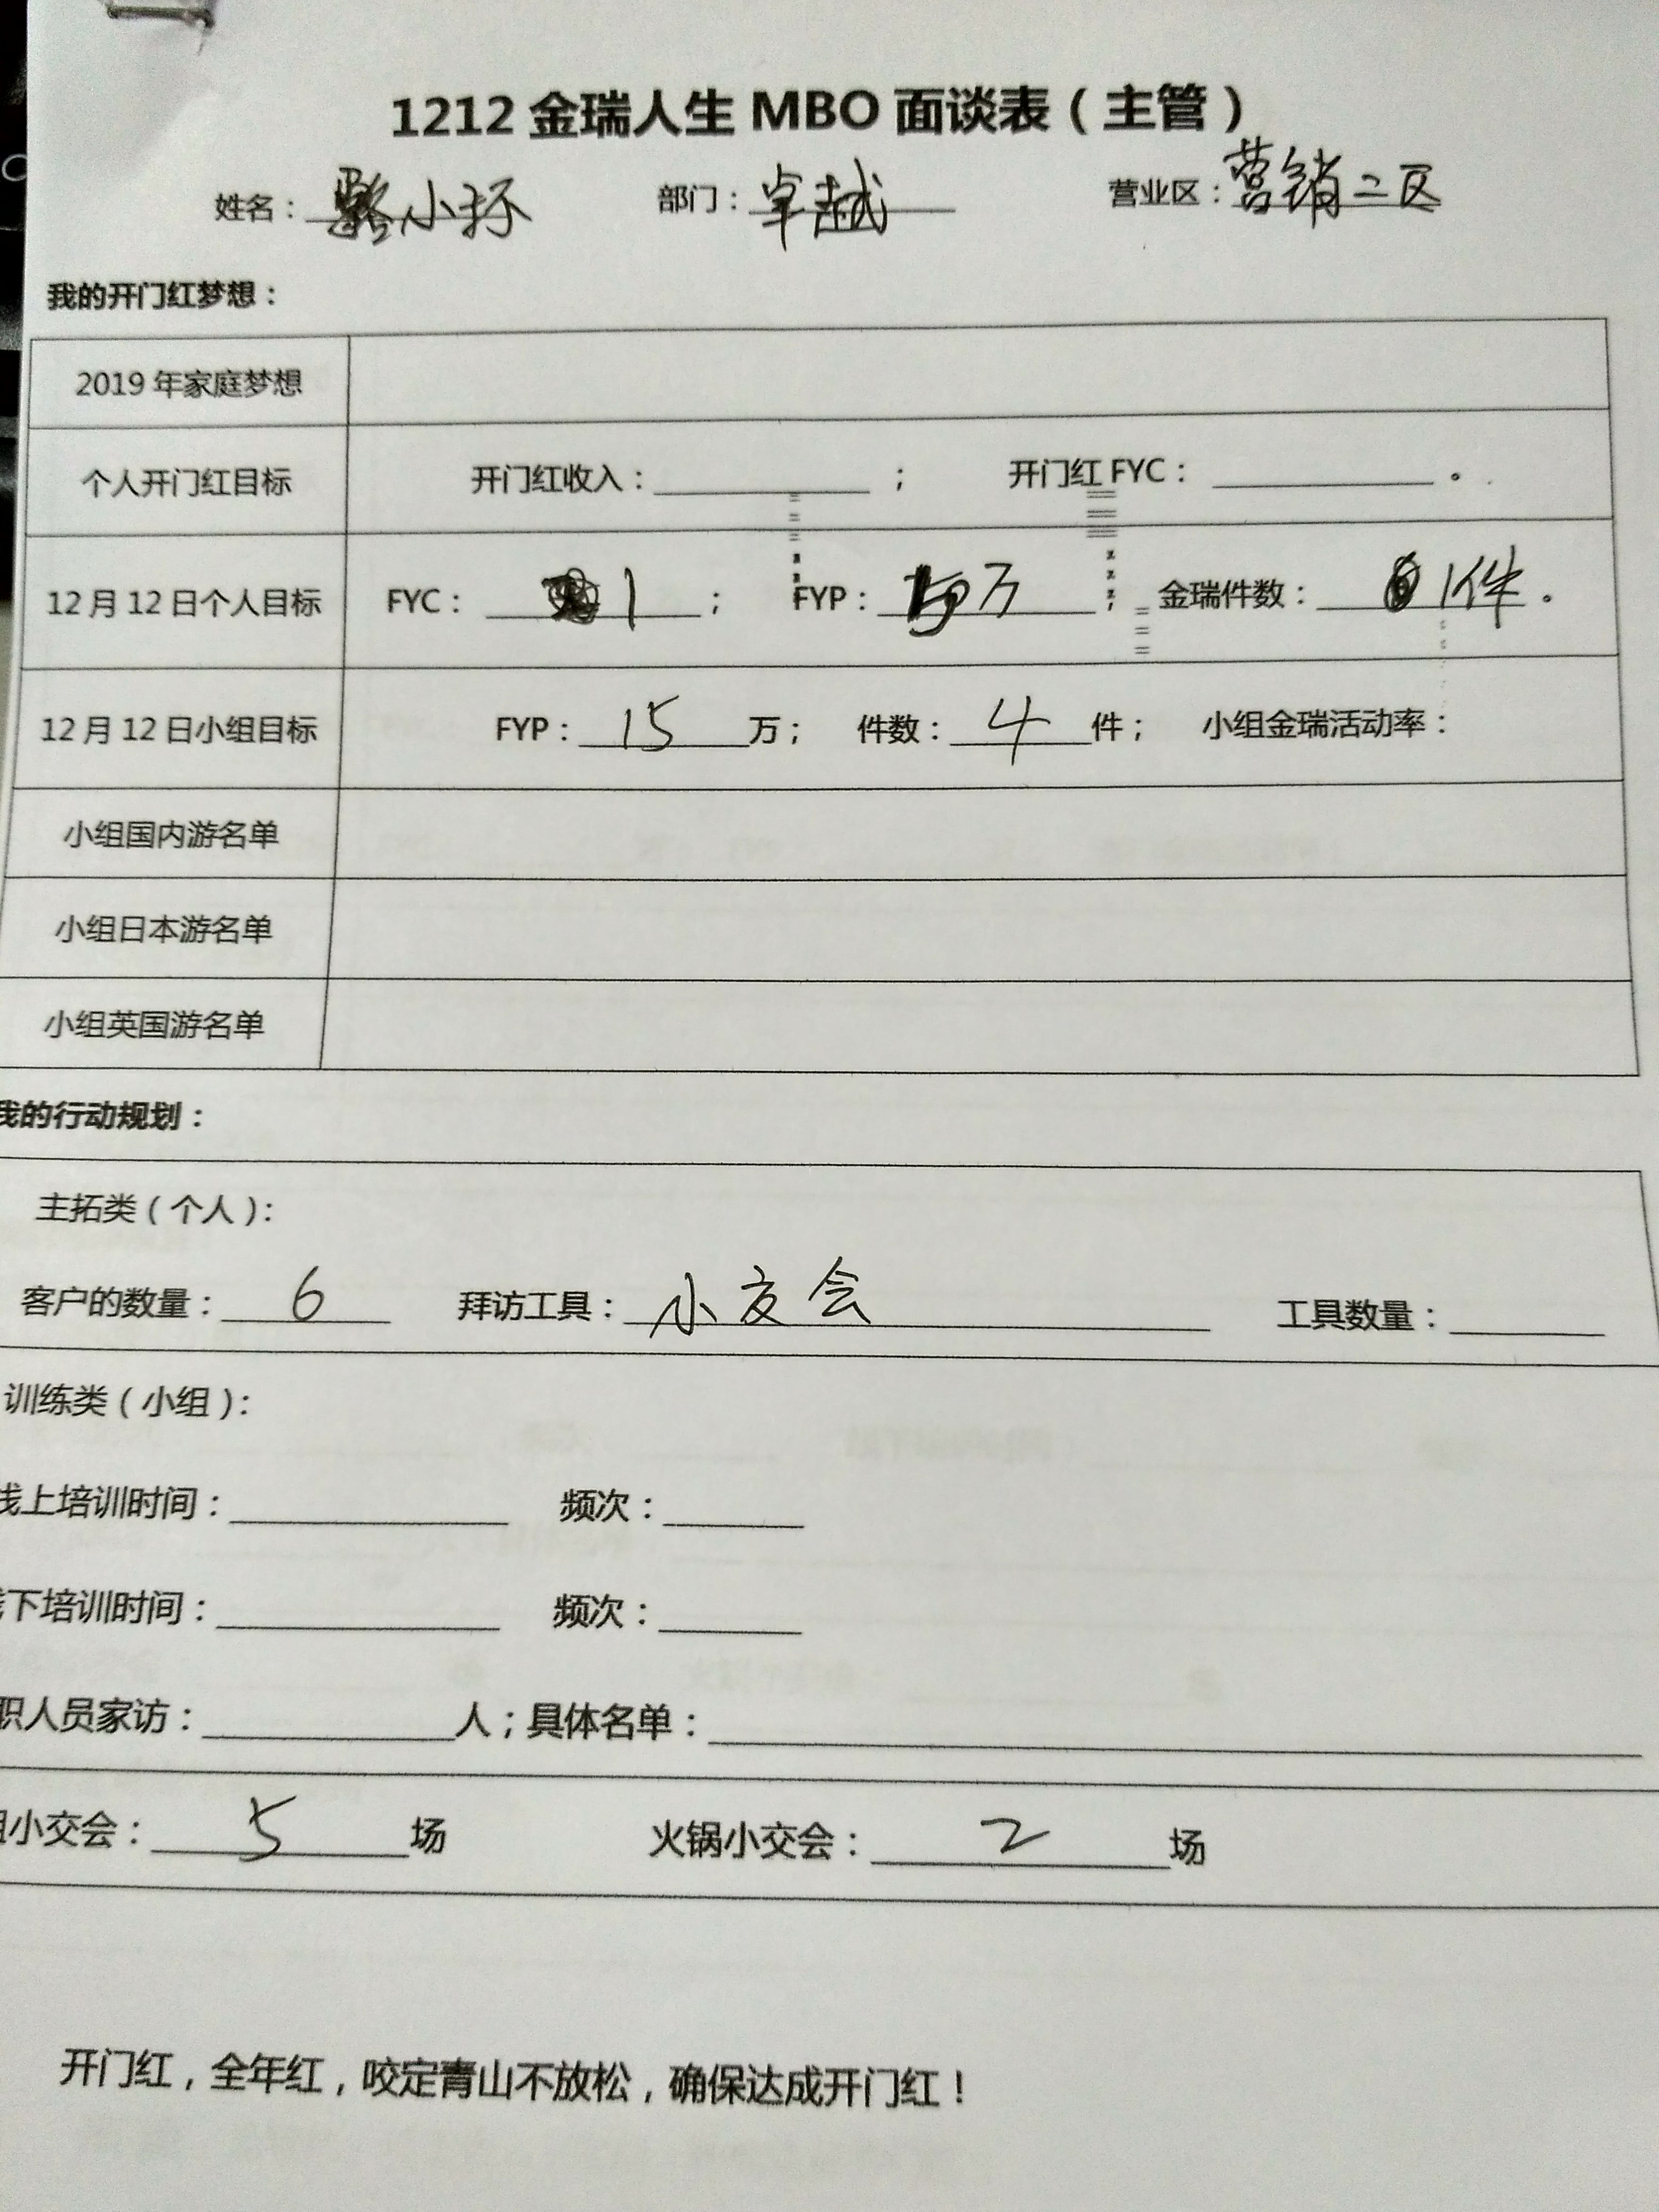 1212金瑞人生MBO面谈表（主管）
姓名：小环 部门：卓越 营业区：营销二区
我的开门红梦想：
2019年家庭梦想
个人开门红目标 开门红收入： ； 开门红FYC： 。
12月12日个人目标 FYC：1； FYP：万； 金瑞件数：1件。
12月12日小组目标 FYP：15万； 件数：4件； 小组金瑞活动率：
小组国内游名单
小组日本游名单
小组英国游名单
我的行动规划：
主拓类（个人）：
客户的数量：6 拜访工具：小交会 工具数量：
训练类（小组）：
线上培训时间： 频次：
下培训时间： 频次：
职人员家访： 人；具体名单：
小交会：5场 火锅小交会：2场
开门红，全年红，咬定青山不放松，确保达成开门红！